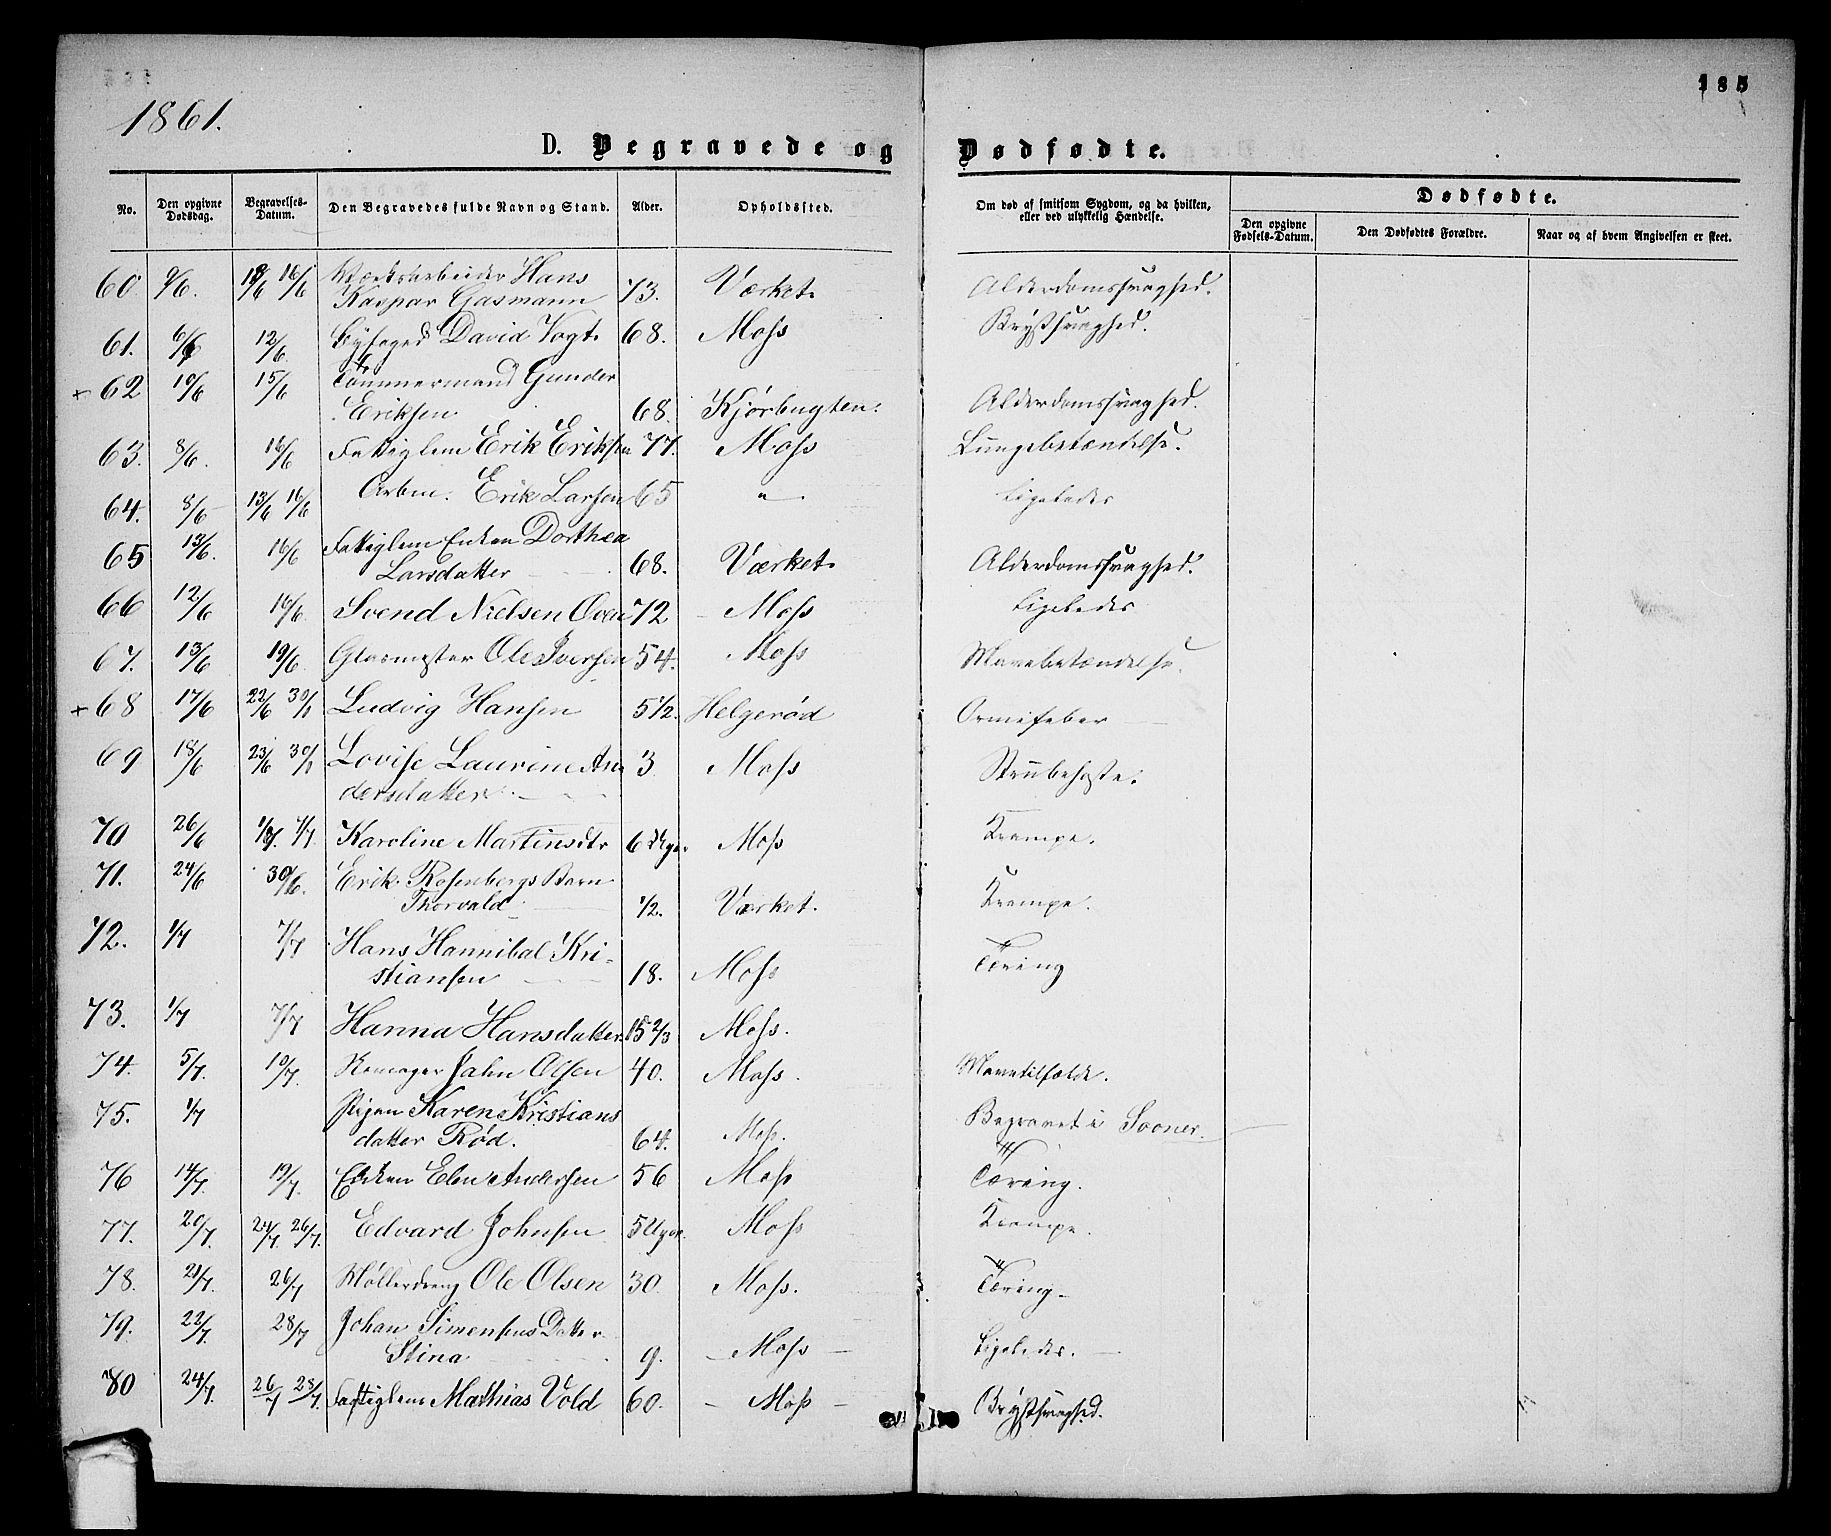 1861.
185
D. Begravede og Dødfødte.
No. Den opgivne Dødsdag. Begravelses-Datum. Den Begravedes fulde Navn og Stand. Alder. Opholdssted. Om død af smitsom Sygdom, og da hvilken, eller ved ulykkelig Hændelse. Dødfødte.
Den opgivne Fødsels-Datum. Den Dødfødtes Forældre. Naar og af hvem Angivelsen er skeet.
60 9/6. 16/6 Værksarbeider Hans
Kaspar Gasmann 73. Værket. Alderdomssvaghed.
61. 6/6 12/6 Byfoged David Vogt. 68. Moss Brystsvaghed.
+ 62 10/6 15/6 Tømmermand Gunder
Eriksen 68. Kjørbugten. Alderdomssvaghed.
63. 8/6. 16/6 Fattiglem Erik Eriksen 77. Moss Lungebetændelse.
64. 8/6 13/6 16/6 Arbm. Erik Larsen 65 " Ligeledes
65 13/6. 16/6 Fattiglem Enken Dorthea
Larsdatter 68. Værket. Alderdomssvaghed.
66 12/6 16/6 Svend Nielsen 72 Moss Ligeledes
67. 13/6 19/6. Glasmester Ole Iversen 54. Moss Mavebetændelse.
+ 68 17/6 22/6 30/1 Ludvig Hansen 5 1/2. Helgerød Ormefeber
69 18/6 23/6 30/1 Lovise Laurine An
dersdatter 3 Moss Strubehoste.
70 26/6 7/7 Karoline Martinsdtr 6 Uger Moss Krampe.
71. 24/6 30/6. Erik Rosenbergs Barn
Thorvald 1/2. Værket. Krampe.
72. 1/7 7/7 Hans Hannibal Kri-
stiansen 18. Moss Tæring
73. 1/7 7/7 Hanna Hansdatter 15 2/3 Moss.
74. 5/7. 10/7. Remager John Olsen 40. Moss. Mavetilfælde.
75. 1/7 Pigen Karen Kristians
datter Rød. 64. Moss. Begravet i Sooner.
76 14/7. 19/7. Enken Elen Andersen 56 Moss Tæring.
77. 20/7. 24/7. 26/7. Edvard Johnsen 5 Uger. Moss Krampe.
78. 21/7. 26/7 Møllerdreng Ole Olsen 30. Moss. Tæring.
79. 22/7. 28/7 Johan Simensens Datter
Stina 9. Moss Ligeledes.
80 24/7. 26/7 28/7. Fattiglem Mathias Vold 60. Moss Brystsvaghed.